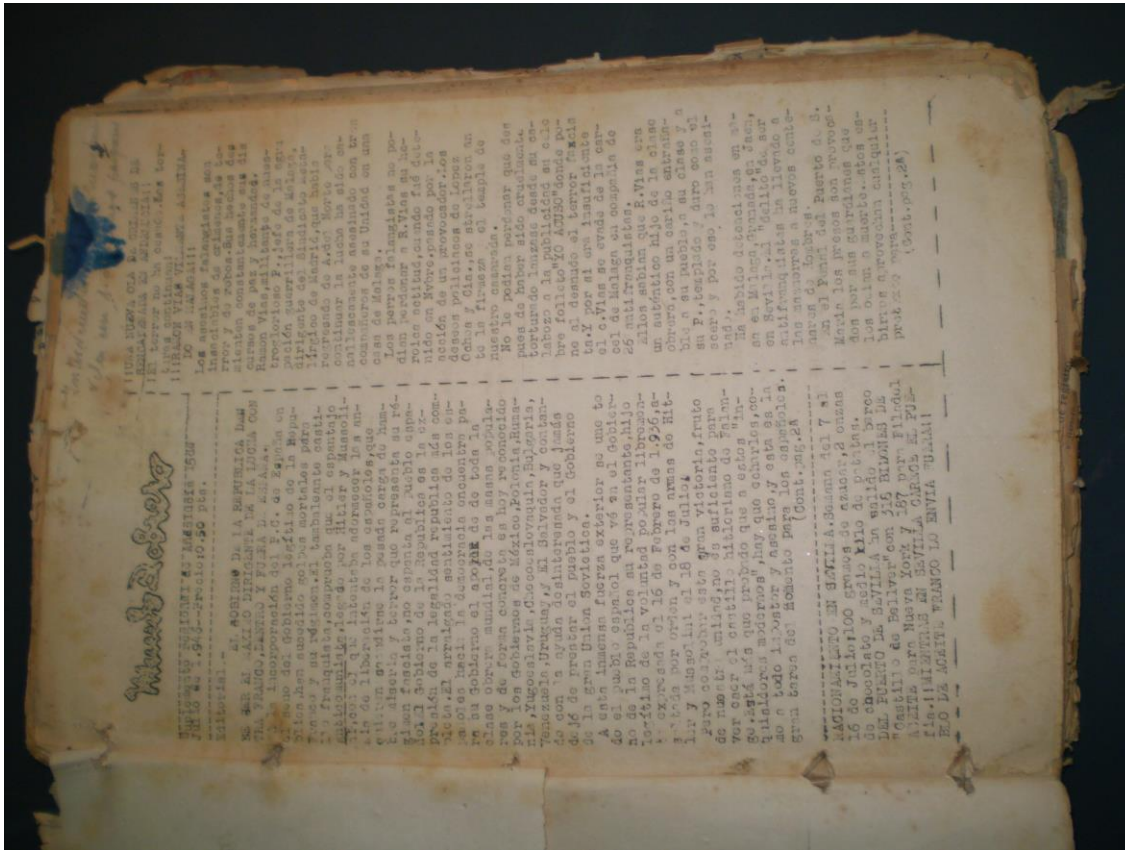 Mundo Obrero
JULIO de 1.946-Precio:0.50 pts.
Editorial -
EL GOBIERNO DE LA REPUBLICA DEBE
SER EL UNICO DIRIGENTE DE LA LUCHA CON
TRA FRANCO, DENTRO Y FUERA D ESPAÑA.
La incorporación del P.C. de España en
el seno del Gobierno legítimo de la Repu-
blica, han sucedido golpes mortales para
Franco y su régimen. El tambaleante casti-
llo franquista, comprueba que el espantajo
anticomunista, legado por Hitler y Mussoli-
ni, con el que intentaba adormecer las an-
sias de liberación de los españoles, que
quieren sacudirse la pesada carga de ham-
bre, miseria y terror que representa su ré-
gimen fascista, no espanta al pueblo espa-
ñol. El Gobierno de la República es la ex-
presión de la legalidad republicana com-
pleta. El arraigado sentimiento de los es-
pañoles hacia la democracia encuentra pa-
ra su Gobierno el apoyo de toda la
clase obrera mundial, de las masas popula-
res y de forma concreta es hoy reconocido
por los Gobiernos de México, Polonia, Ruma-
nia, Yugoeslavia, Checoeslovaquia, Bulgaria,
Venezuela, Uruguay, y El Salvador y contan-
do con la ayuda desinteresada que jamás
dejó de prestar el pueblo y el Gobierno
de la gran Unión Sovietica.
A esta inmensa fuerza exterior se une to
do el pueblo español que vé en el Gobier-
no de la Republica su representante, hijo
legítimo de la voluntad popular libremen-
te expresada el 16 de Febrero de 1.936, a-
saltada por orden y con las armas de Hit-
ler y Mussolini el 18 de Julio.
Pero comprobar esta gran victoria, fruto
de nuestra unidad, no es suficiente para
ver caer el castillo hitleriano de Falan-
ge. Está más que probado que a estos "in-
quisidores modernos", hay que echarlos, co-
mo a todo impostor y asesino, y esta es la
gran tarea del momento para los españoles.
(Cont. pag. 2ª)
RACIONAMIENTO EN SEVILLA. Semana del 7 al
16 de Julio; 100 gramos de azucar, 2 onzas
de chocolate y medio kilo de patatas.
DEL PUERTO DE SEVILLA ha salido el barco
"Castillo de Bellver" con 516 BIDONES DE
ACEITE para Nueva York y 187 para Filadel
fia. ¡¡MIENTRAS EN SEVILLA CARECE EL PUE-
BLO DE ACEITE FRANCO LO ENVIA FUERA!!
¡¡UNA NUEVA OLA DE CRIMENES DE
¡¡EL terror no ha cesado. Los tor-
¡¡¡RAMON VIAS VIL
DO EN MALAGA!!!
Los asesinos falangistas son
insaciables de crimenes, de te-
rror y de robos. Sus hechos des
mienten constantemente sus dis
cursos de paz y hermandad.
Ramon Vias, militante de nues-
tro glorioso P., jefe de la agru
pación guerrillera de Malaga,
dirigente del Sindicato meta-
lúrgico de Madrid, que habia
regresado de A. del Norte para
continuar la lucha ha sido ca-
nallescamente asesinado con tres
compañeros de su Unidad en una
casa de Malaga.
Los perros falangistas no po-
dian perdonar a R. Vias su he-
roica actitud, cuando fué dete-
nido en Nvbre, pasado por la
acción de un provocador. Los
deseos policiacos de Lopez
Ochoa y Cia. se estrellaron an
te la firmeza y el temple de
nuestro camarada.
No le podían perdonar que des
pues de haber sido cruelmente
torturado lanzase desde su ca-
labozo a la publicidad su cele
bre folleto "YO ACUSO" donde po-
ne al desnudo el terror fascis
ta. Y por si era insuficiente
el c. Vias se evade de la car-
cel de Malaga en compañia de
26 antifranquistas.
Ellos sabian que R. Vias era
un auténtico hijo de la clase
obrera, con un cariño entraña-
ble a su pueblo, a su clase y a
su P., templado y duro como el
acero y por eso, lo han asesi-
nado.
Ha habido detenciones en ma-
sa en Malaga, Granada, en Jaen,
en Seville. El "delito" de ser
antifranquistas ha llevado a
las mazmorras a nuevos cente-
nares de hombres.
En el Penal del Puerto de S.
Maria los presos son provoca-
dos por sus guardianes que
los odian a muerte. Estos es-
birros aprovechan cualquier
pretexto para
(Cont. pag. 2ª)